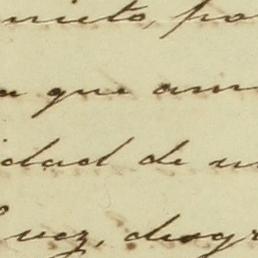 nieto, po
a que am
idad de u
vez, desgr